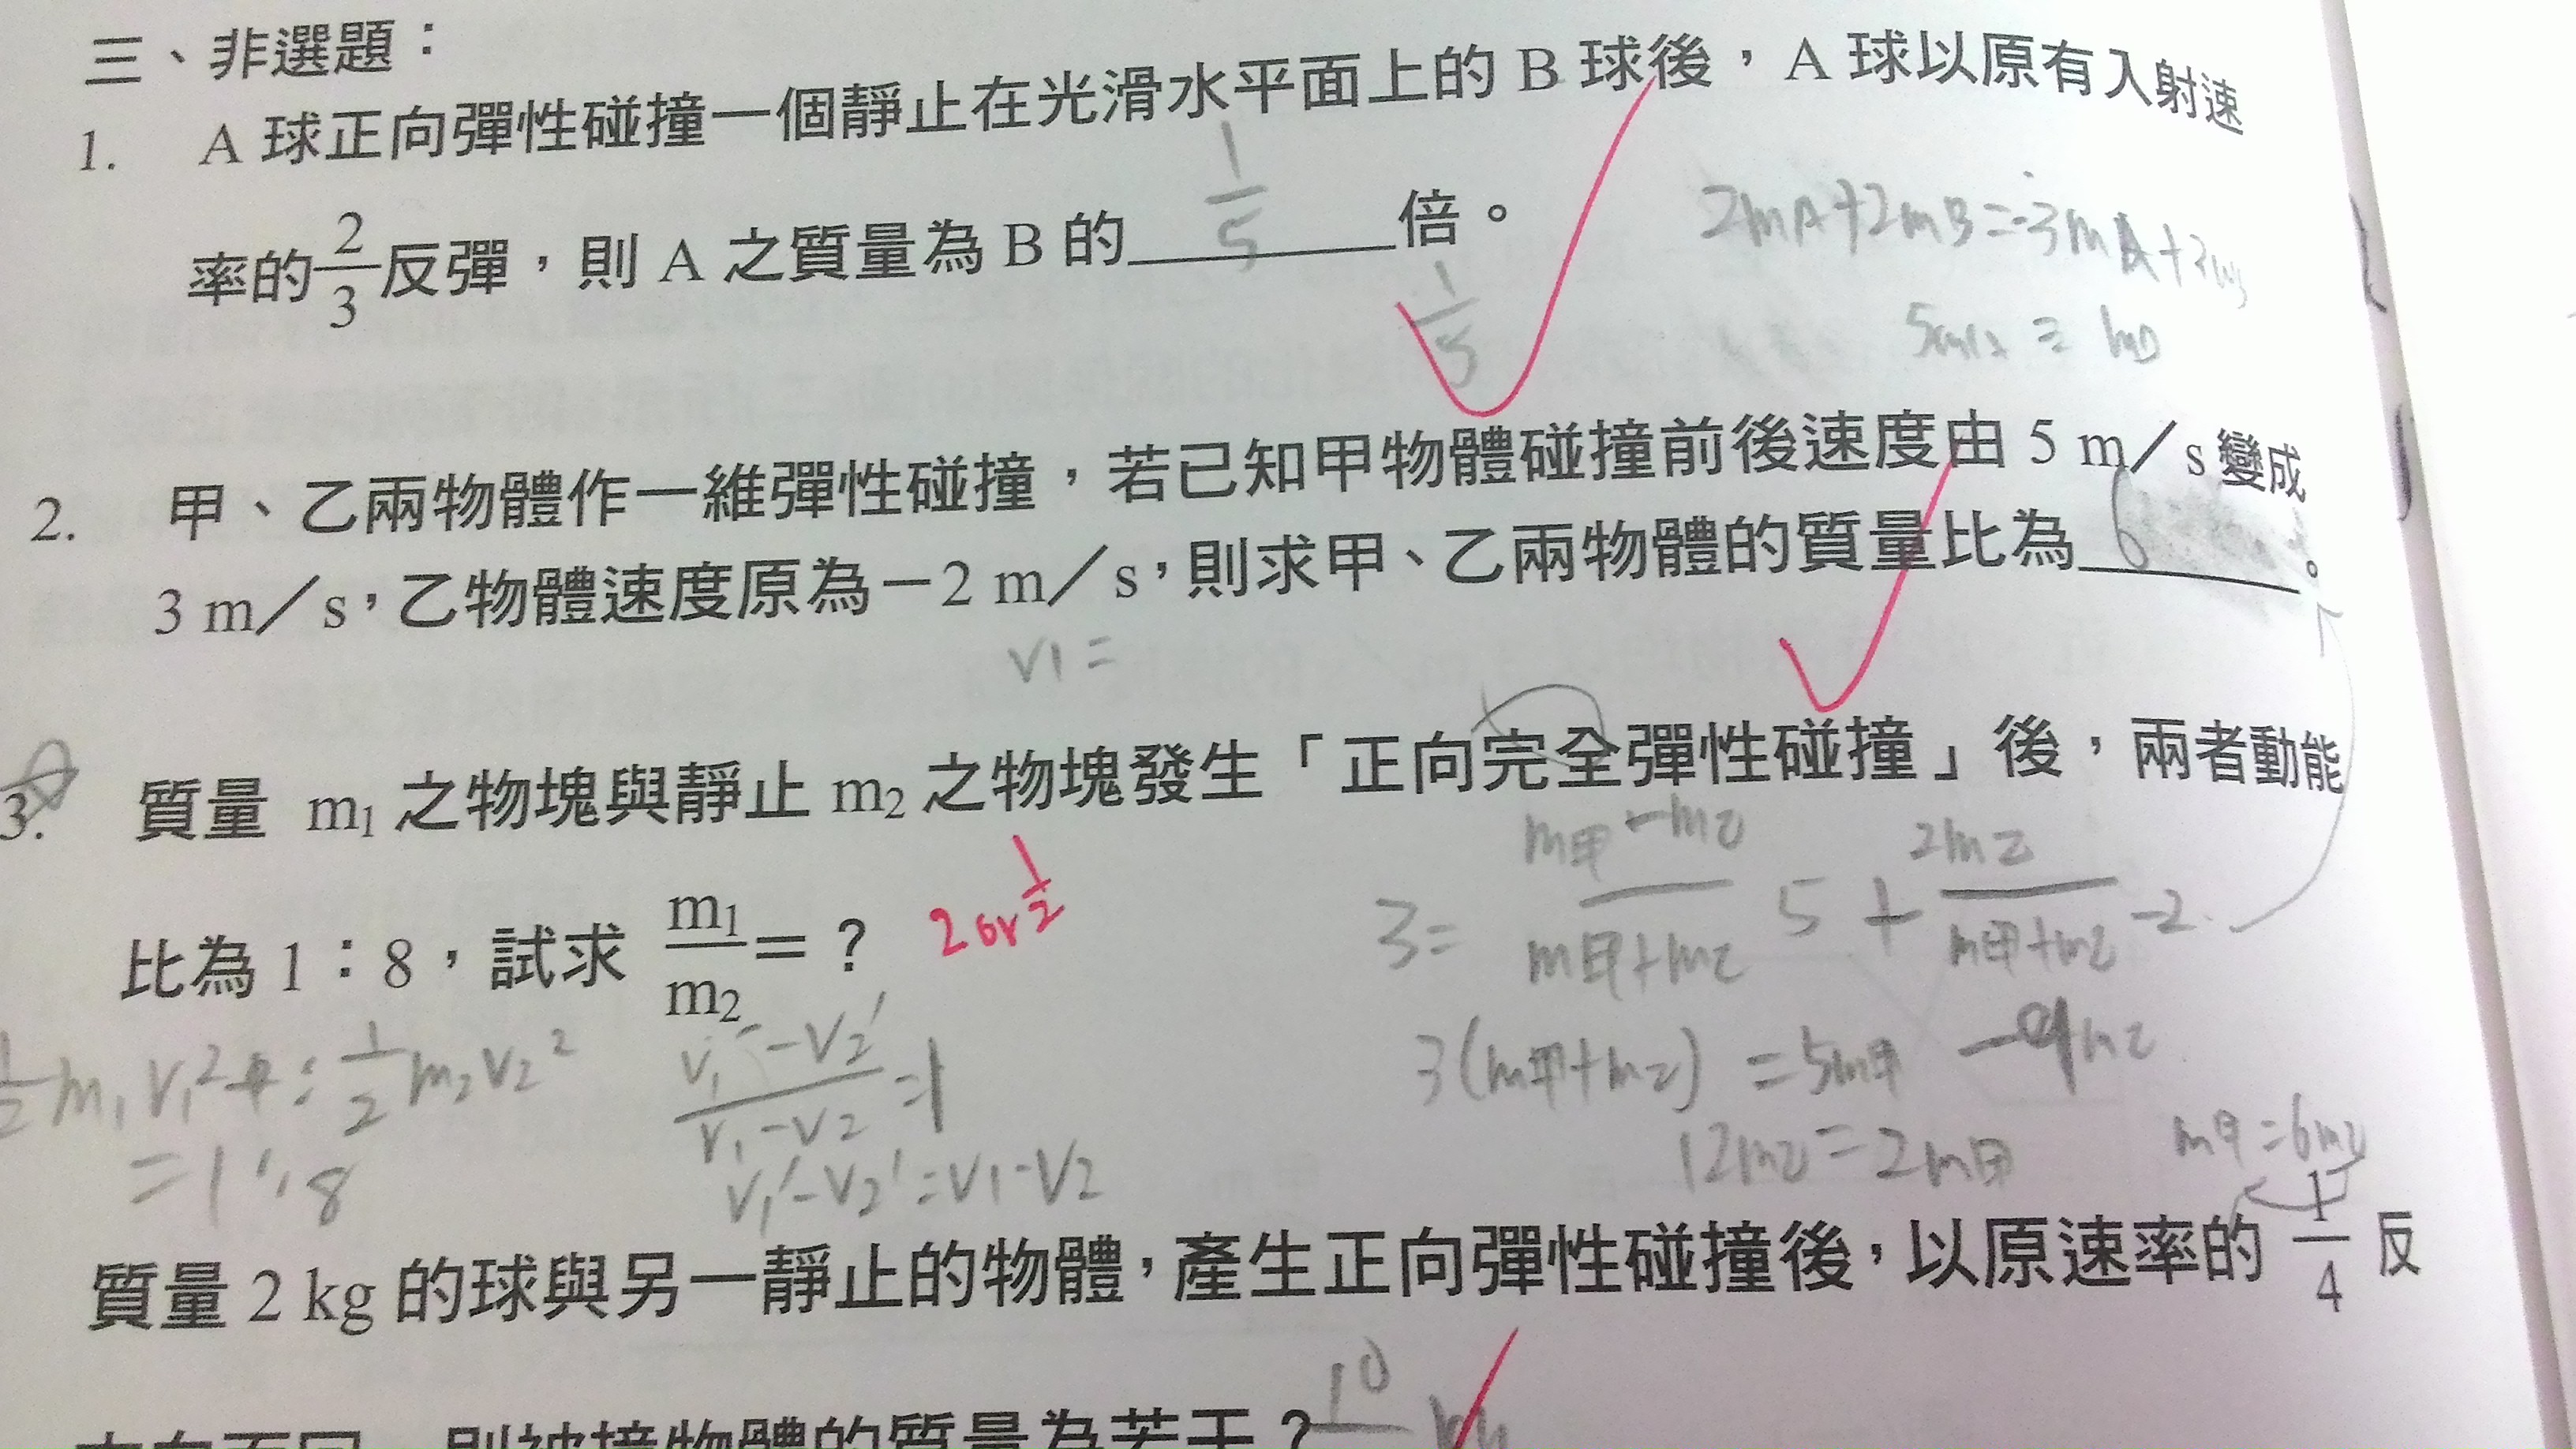 三、非選題：
1. A 球正向彈性碰撞一個靜止在光滑水平面上的 B 球後，A 球以原有入射速
率的 2/3 反彈，則 A 之質量為 B 的 1/5 倍。
1/5
2mA+2mB=-3mA+3mB
5mA = mB
2. 甲、乙兩物體作一維彈性碰撞，若已知甲物體碰撞前後速度由 5 m／s 變成
3 m／s，乙物體速度原為－2 m／s，則求甲、乙兩物體的質量比為 6 。
v1 =
3. 質量 m1 之物塊與靜止 m2 之物塊發生「正向完全彈性碰撞」後，兩者動能
比為 1：8，試求 m1/m2 ＝？ 2 or 1/2
3= m甲-m乙/m甲+m乙 5 + 2m乙/m甲+m乙 -2
3(m甲+m乙) =5m甲 -9m乙
12m乙=2m甲
m甲=6m乙
1/2 m1 v1² : 1/2 m2 v2²
=1:8
v1'-v2'/v1-v2 =1
v1'-v2'=v1-v2
質量 2 kg 的球與另一靜止的物體，產生正向彈性碰撞後，以原速率的 1/4 反
方向而回，則被撞物體的質量為若干？ 10